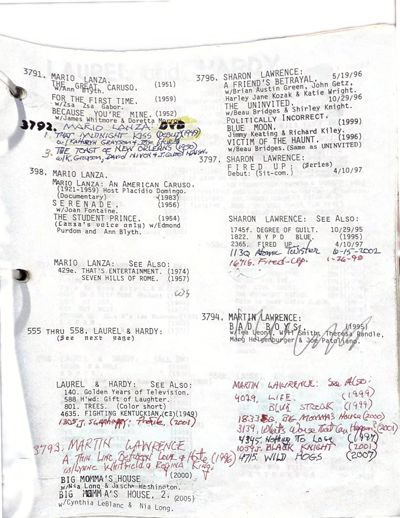 3791. MARIO LANZA.
THE GREAT CARUSO. (1951)
w/Ann Blyth.
FOR THE FIRST TIME. (1959)
w/Zsa Zsa Gabor.
BECAUSE YOU'RE MINE. (1952)
w/James Whitmore & Doretta Morrow.
3792. MARIO LANZA: DVD
THAT MIDNIGHT KISS (Debut)(1949)
w/ KATHRYN GRAYSON & JOSE ITURBI
3. THE TOAST OF NEW ORLEANS (1950)
w/K. GRAYSON, DAVID NIVEN & J. CARROL NAISH.
398. MARIO LANZA.
MARIO LANZA: AN AMERICAN CARUSO.
(1921-1959) Host Placidio Domingo.
(Documentary) (1983)
SERENADE. (1956)
w/Joan Fontaine.
THE STUDENT PRINCE. (1954)
(Lanza's voice only) w/Edmond Purdom and Ann Blyth.
MARIO LANZA: SEE ALSO:
429e. THAT'S ENTERTAINMENT. (1974)
SEVEN HILLS OF ROME. (1957)
555 THRU 558. LAUREL & HARDY:
(See next page)
LAUREL & HARDY: SEE ALSO:
140. Golden Years of Television.
588. H'wd: Gift of Laughter.
801. TREES. (Color short)
4635. FIGHTING KENTUCKIAN,(E3)(1949)
3793. MARTIN LAWRENCE
A THIN LINE BETWEEN LOVE & HATE (1996)
w/Lynne Whitfield & Regina King.
BIG MOMMA'S HOUSE. (2000)
w/Nia Long & Jascha Washington.
BIG MOMMA'S HOUSE, 2. (2005)
w/Cynthia LeBlanc & Nia Long.
3796. SHARON LAWRENCE: 5/19/96
A FRIEND'S BETRAYAL.
w/Brian Austin Green, John Getz, Harley Jane Kozak & Katie Wright.
THE UNINVITED. 10/29/96
w/Beau Bridges & Shirley Knight.
POLITICALLY INCORRECT.
BLUE MOON. (1999)
Jimmy Keating & Richard Kiley.
VICTIM OF THE HAUNT. (1996)
w/Beau Bridges.(Same as UNINVITED)
3797. SHARON LAWRENCE:
FIRED UP; (Series)
Debut: (Sit-com.) 4/10/97
SHARON LAWRENCE: SEE ALSO:
1745f. DEGREE OF GUILT. 10/29/95
1822. NYPD BLUE. (1995)
2365. FIRED UP. 4/10/97
113Q Atomic Twister 6-15-2002
3794. MARTIN LAWRENCE:
BAD BOYS. (1995)
w/Tea Leoni, Will Smith, Theresa Randle,
Marg Helgenburger & Joe Patoliano.
MARTIN LAWRENCE: See Also:
4029. LIFE. (1999)
BLUE STREAK (1999)
BIG MOMMA'S HOUSE (2000)
3139. What's Worse That Can Happen? (2001)
4345. Nothing To Lose (1997)
BLACK KNIGHT (2001)
4715. WILD HOGS (2007)